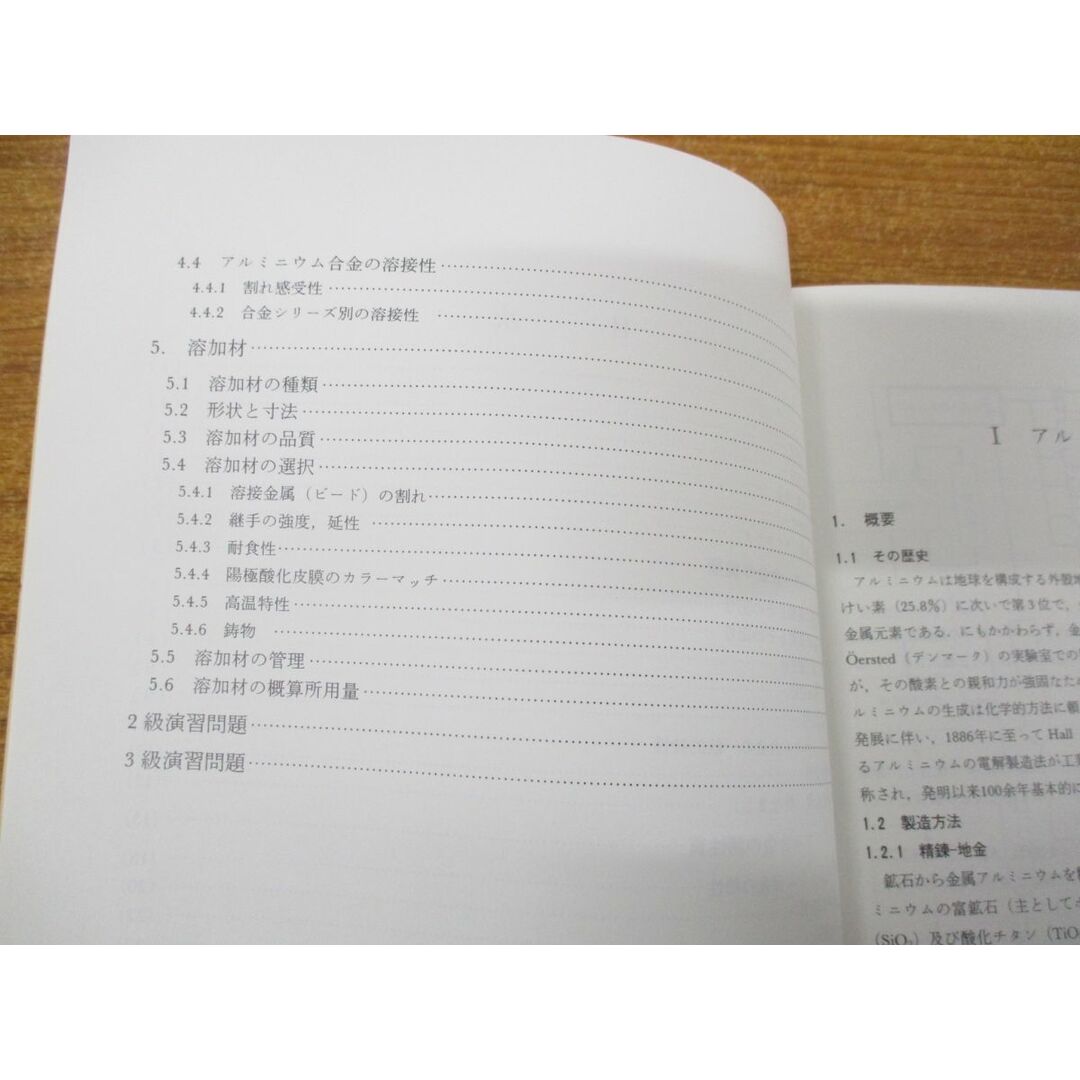 4.4 アルミニウム合金の溶接性
4.4.1 割れ感受性
4.4.2 合金シリーズ別の溶接性
5. 溶加材
5.1 溶加材の種類
5.2 形状と寸法
5.3 溶加材の品質
5.4 溶加材の選択
5.4.1 溶接金属(ビード)の割れ
5.4.2 継手の強度,延性
5.4.3 耐食性
5.4.4 陽極酸化皮膜のカラーマッチ
5.4.5 高温特性
5.4.6 鋳物
5.5 溶加材の管理
5.6 溶加材の概算所用量
2級演習問題
3級演習問題
I アル
1. 概要
1.1 その歴史
アルミニウムは地球を構成する外殻
けい素(25.8%)に次いで第3位で,
金属元素である.にもかかわらず,金
Öersted(デンマーク)の実験室での
が,その酸素との親和力が強固なため
ルミニウムの生成は化学的方法に頼
発展に伴い,1886年に至って Hall
るアルミニウムの電解製造法が工業
称され,発明以来100余年基本的に
1.2 製造方法
1.2.1 精錬-地金
鉱石から金属アルミニウムを
ミニウムの富鉱石(主として
(SiO₂)及び酸化チタン(TiO